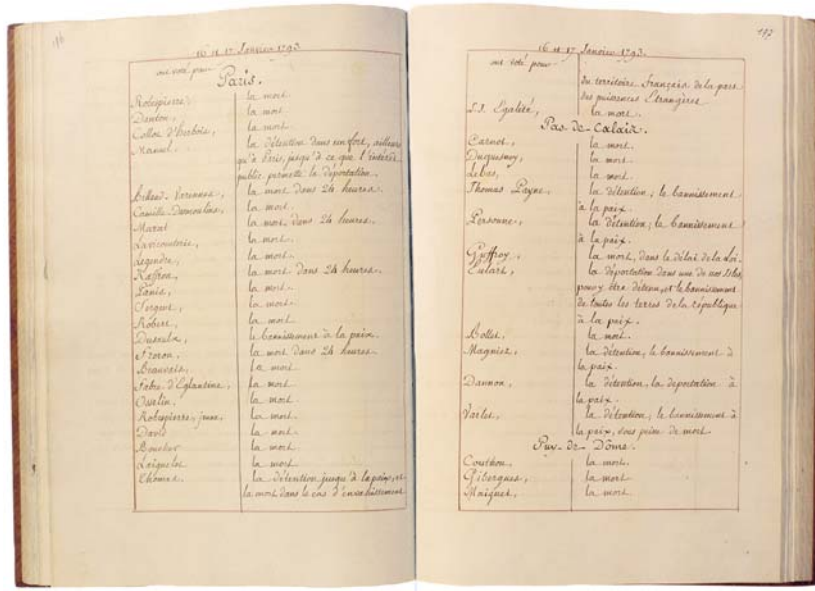 16 et 17 Janvier 1793.
ont voté pour
Paris.
Robespierre, la mort.
Danton, la mort.
Collot d'Herbois, la mort.
Manuel. la détention dans un fort, ailleurs
qu'à Paris, jusqu'à ce que l'intérêt
public permette la déportation.
Billaud-Varennes, la mort dans 24 heures.
Camille Desmoulins, la mort.
Marat la mort dans 24 heures.
Lavicomterie, la mort.
Legendre, la mort.
Raffron, la mort dans 24 heures.
Panis, la mort.
Sergent, la mort.
Robert, la mort.
Dusaulx, le bannissement à la paix.
Freron, la mort dans 24 heures.
Beauvais, la mort.
Fabre d'Eglantine, la mort.
Osselin, la mort.
Robespierre, jeune. la mort.
David la mort.
Boucher la mort.
Laignelot la mort.
Thomas, la détention jusqu'à la paix, et
la mort dans le cas d'envahissement
197
16 et 17 Janvier 1793.
ont voté pour
du territoire français de la part
des puissances Etrangères
L.J. Egalité, la mort.
Pas-de-Calais.
Carnot, la mort.
Duquesnoy, la mort.
Lebas, la mort.
Thomas Payne, la détention; le bannissement
à la paix.
Personne, la détention; le bannissement
à la paix.
Guffroy, la mort, dans le délai de la Loi.
Enlart, la déportation dans une de nos Isles,
pour y être détenu, et le bannissement
de toutes les terres de la république
à la paix.
Bollet, la mort.
Magniez, la détention, le bannissement à
la paix.
Daunon, la détention, la déportation à
la paix.
Varlet, la détention; le bannissement à
la paix, sous peine de mort.
Puy-de-Dôme.
Couthon, la mort.
Gibergues, la mort.
Maignet, la mort.